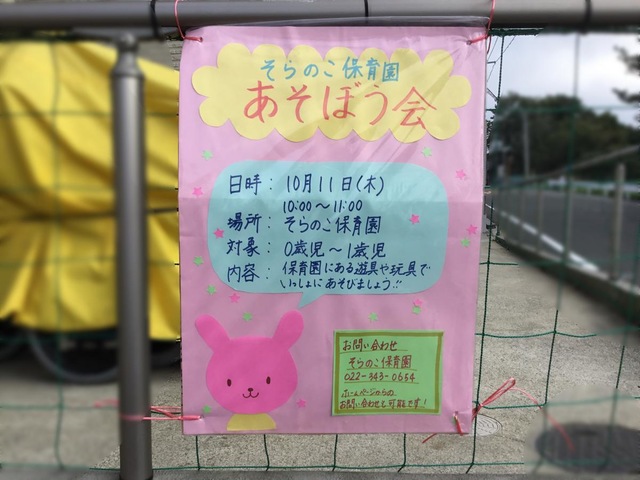 そらのこ保育園
あそぼう会
日時： 10月11日(木)
10:00～11:00
場所： そらのこ保育園
対象： 0歳児～1歳児
内容： 保育園にある遊具や玩具で
いっしょにあそびましょう!!
お問い合わせ
そらのこ保育園
022-343-0654
ホームページからの
お問い合わせも可能です!